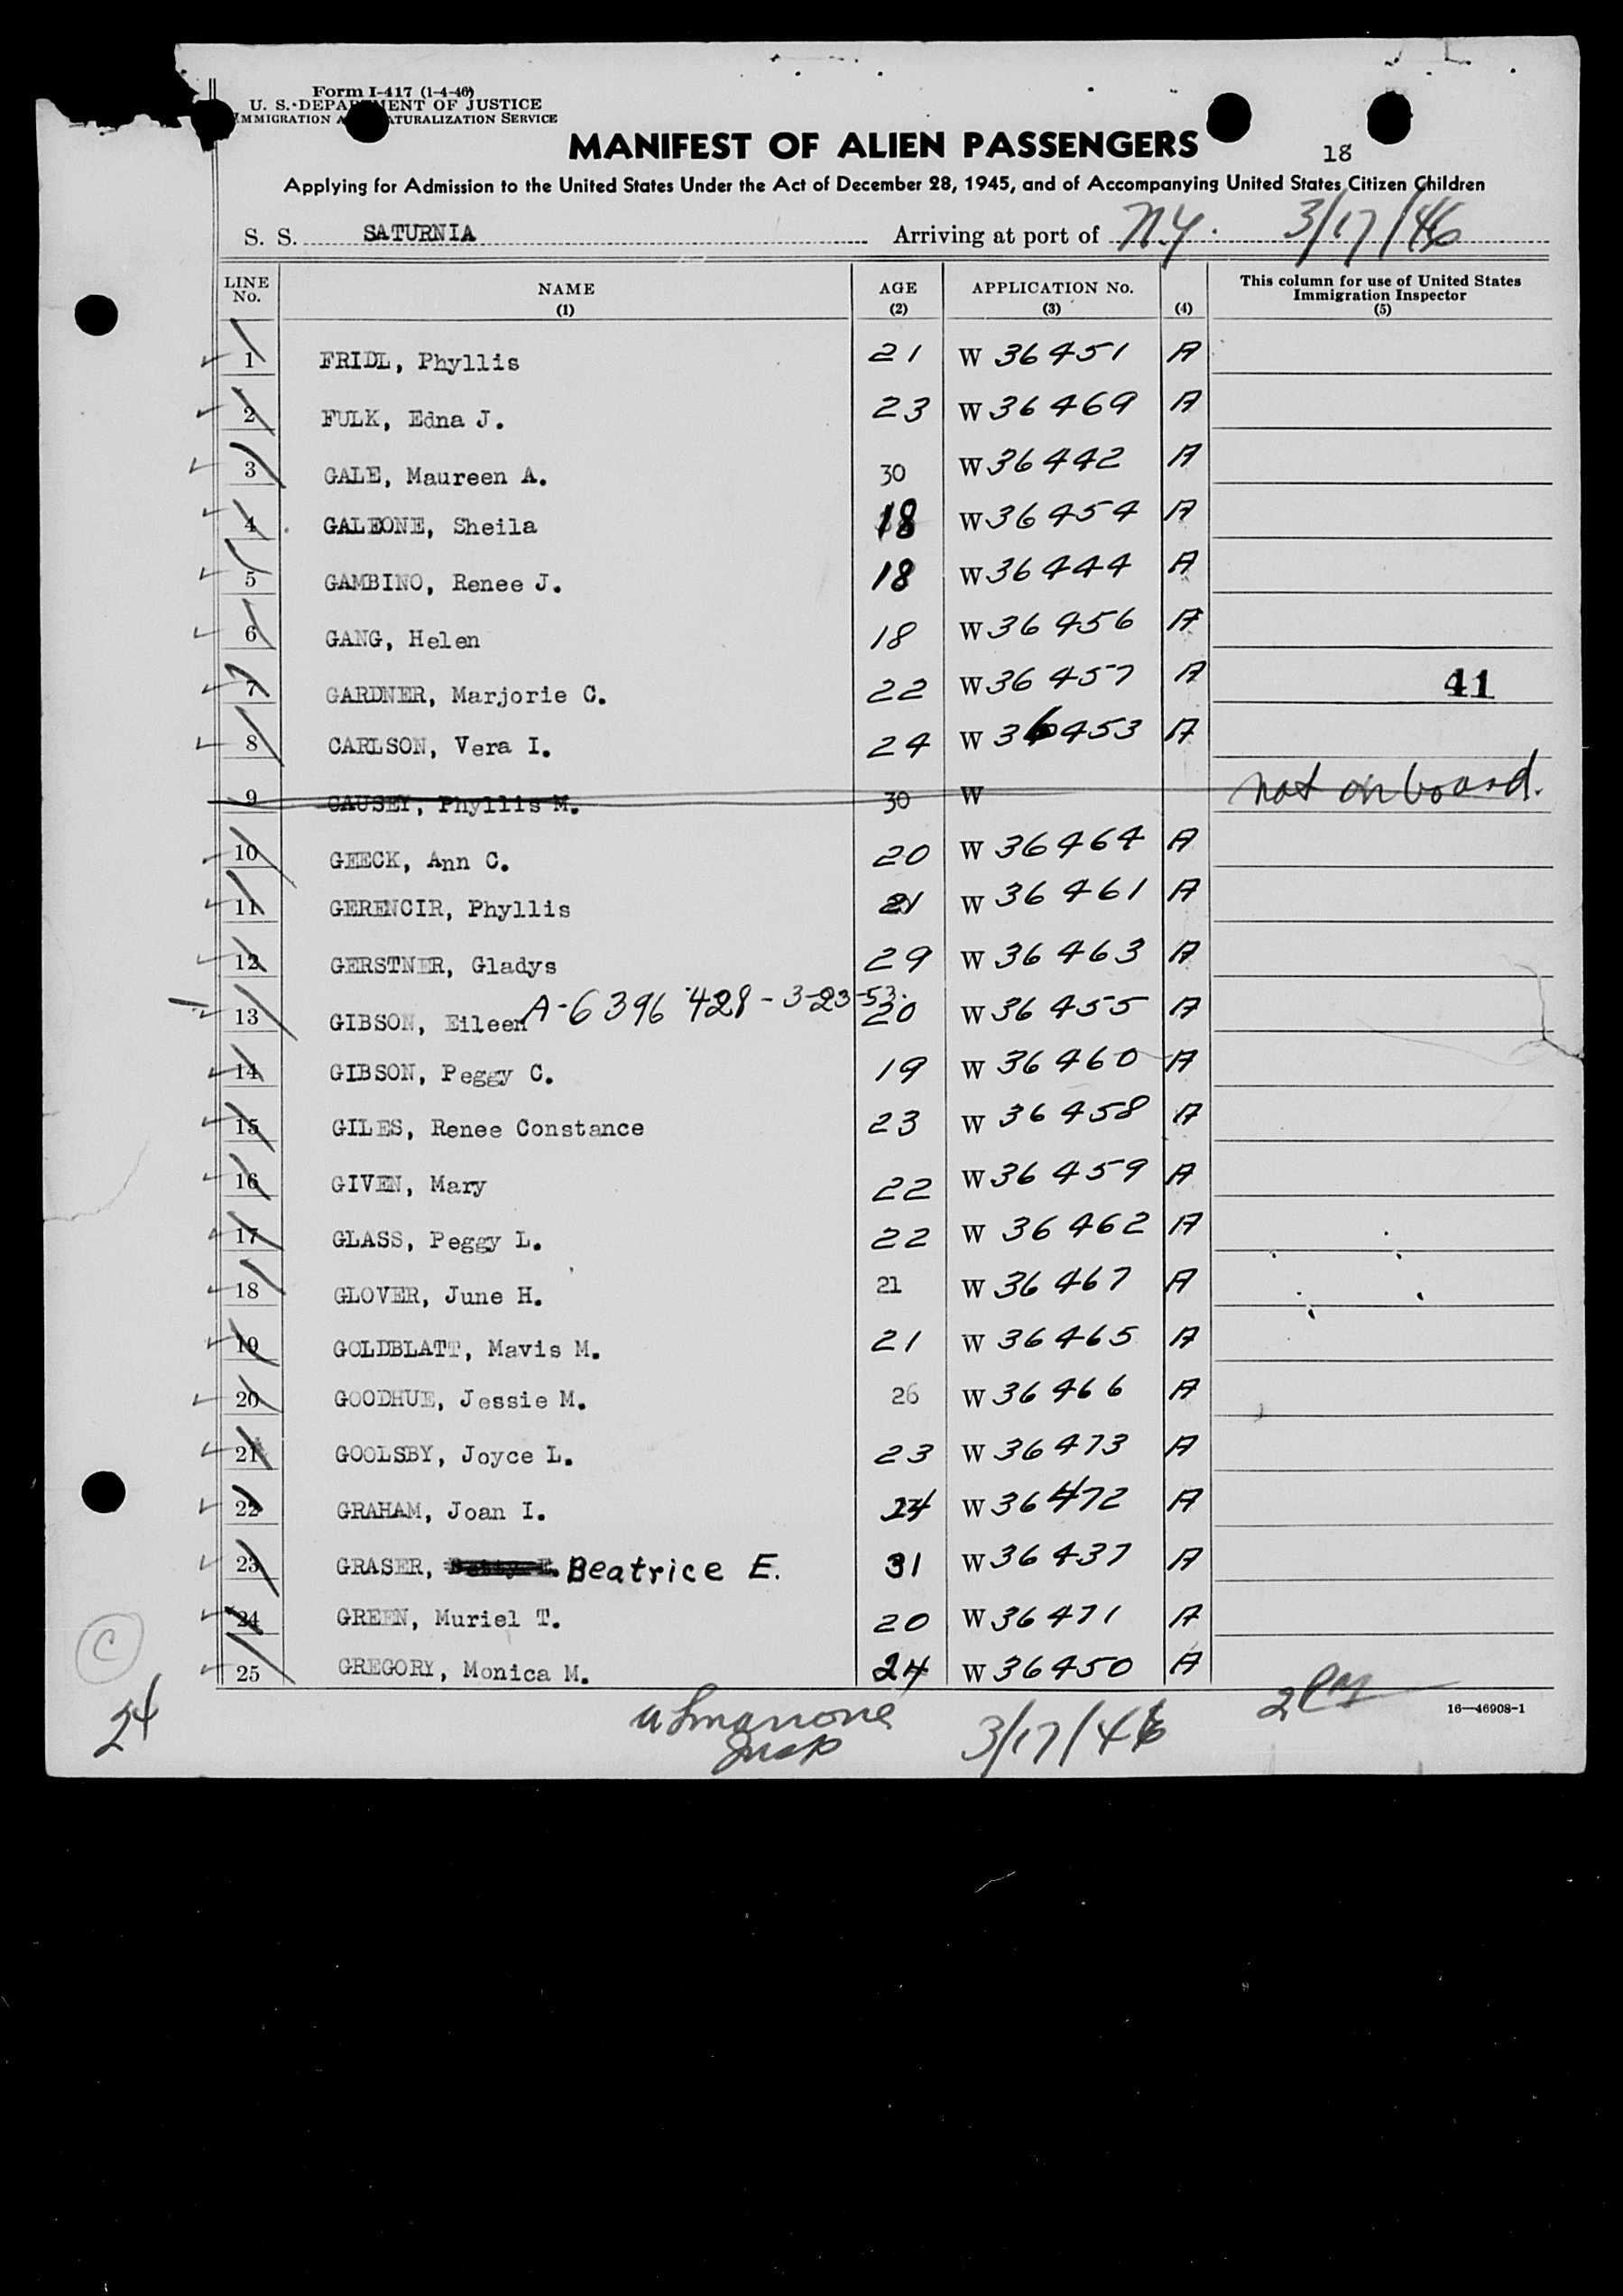 Form I-417 (1-4-46)
U. S. DEPARTMENT OF JUSTICE
IMMIGRATION NATURALIZATION SERVICE
MANIFEST OF ALIEN PASSENGERS
18
Applying for Admission to the United States Under the Act of December 28, 1945, and of Accompanying United States Citizen Children
S. S. SATURNIA Arriving at port of N.Y. 3/17/46
LINE No. NAME (1) AGE (2) APPLICATION No. (3) (4) This column for use of United States Immigration Inspector (5)
1 FRIDL, Phyllis 21 W 36451 A
2 FULK, Edna J. 23 W 36469 A
3 GALE, Maureen A. 30 W 36442 A
4 GALEONE, Sheila 18 W 36454 A
5 GAMBINO, Renee J. 18 W 36444 A
6 GANG, Helen 18 W 36456 A
7 GARDNER, Marjorie C. 22 W 36457 A 41
8 CARLSON, Vera I. 24 W 36453 A
9 CAUSEY, Phyllis M. 30 W not on board.
10 GEECK, Ann C. 20 W 36464 A
11 GERENCIR, Phyllis 21 W 36461 A
12 GERSTNER, Gladys 29 W 36463 A
13 GIBSON, Eileen A-6396428-3-23-53. 20 W 36455 A
14 GIBSON, Peggy C. 19 W 36460 A
15 GILES, Renee Constance 23 W 36458 A
16 GIVEN, Mary 22 W 36459 A
17 GLASS, Peggy L. 22 W 36462 A
18 GLOVER, June H. 21 W 36467 A
19 GOLDBLATT, Mavis M. 21 W 36465 A
20 GOODHUE, Jessie M. 26 W 36466 A
21 GOOLSBY, Joyce L. 23 W 36473 A
22 GRAHAM, Joan I. 24 W 36472 A
23 GRASER, Beatrice E. 31 W 36437 A
24 GREEN, Muriel T. 20 W 36471 A
25 GREGORY, Monica M. 24 W 36450 A
C
24
Insp 3/17/46
16—46908-1